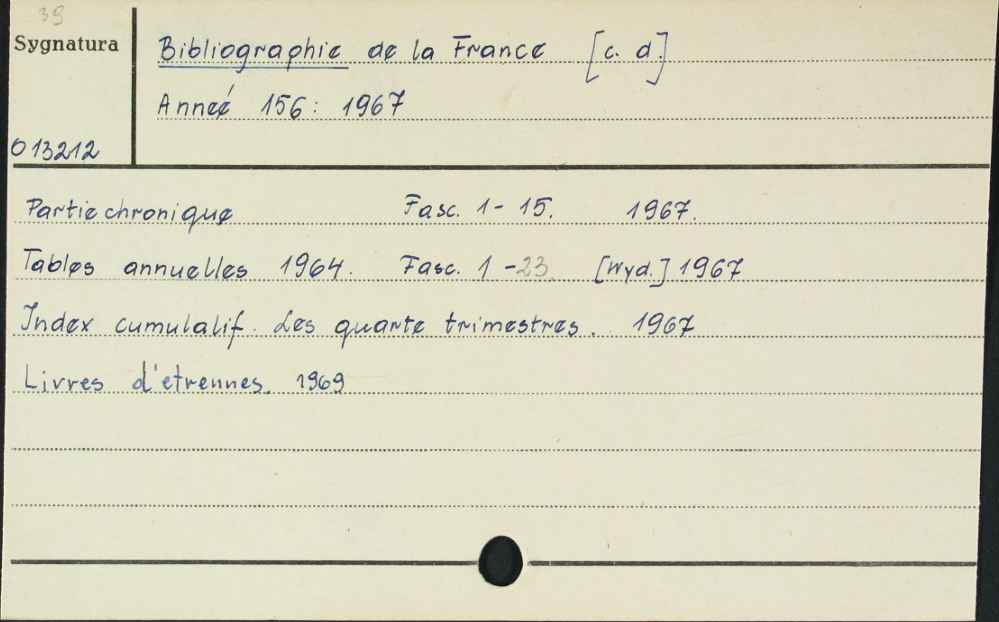 39
Sygnatura
Bibliographie de la France [c. d.]
Anneé 156: 1967
013212
Partie chronique Fasc. 1-15. 1967.
Tables annuelles 1964. Fasc. 1-23 [Wyd.] 1967
Index cumulalif. Les quarte trimestres. 1967
Livres d'etrennes. 1969